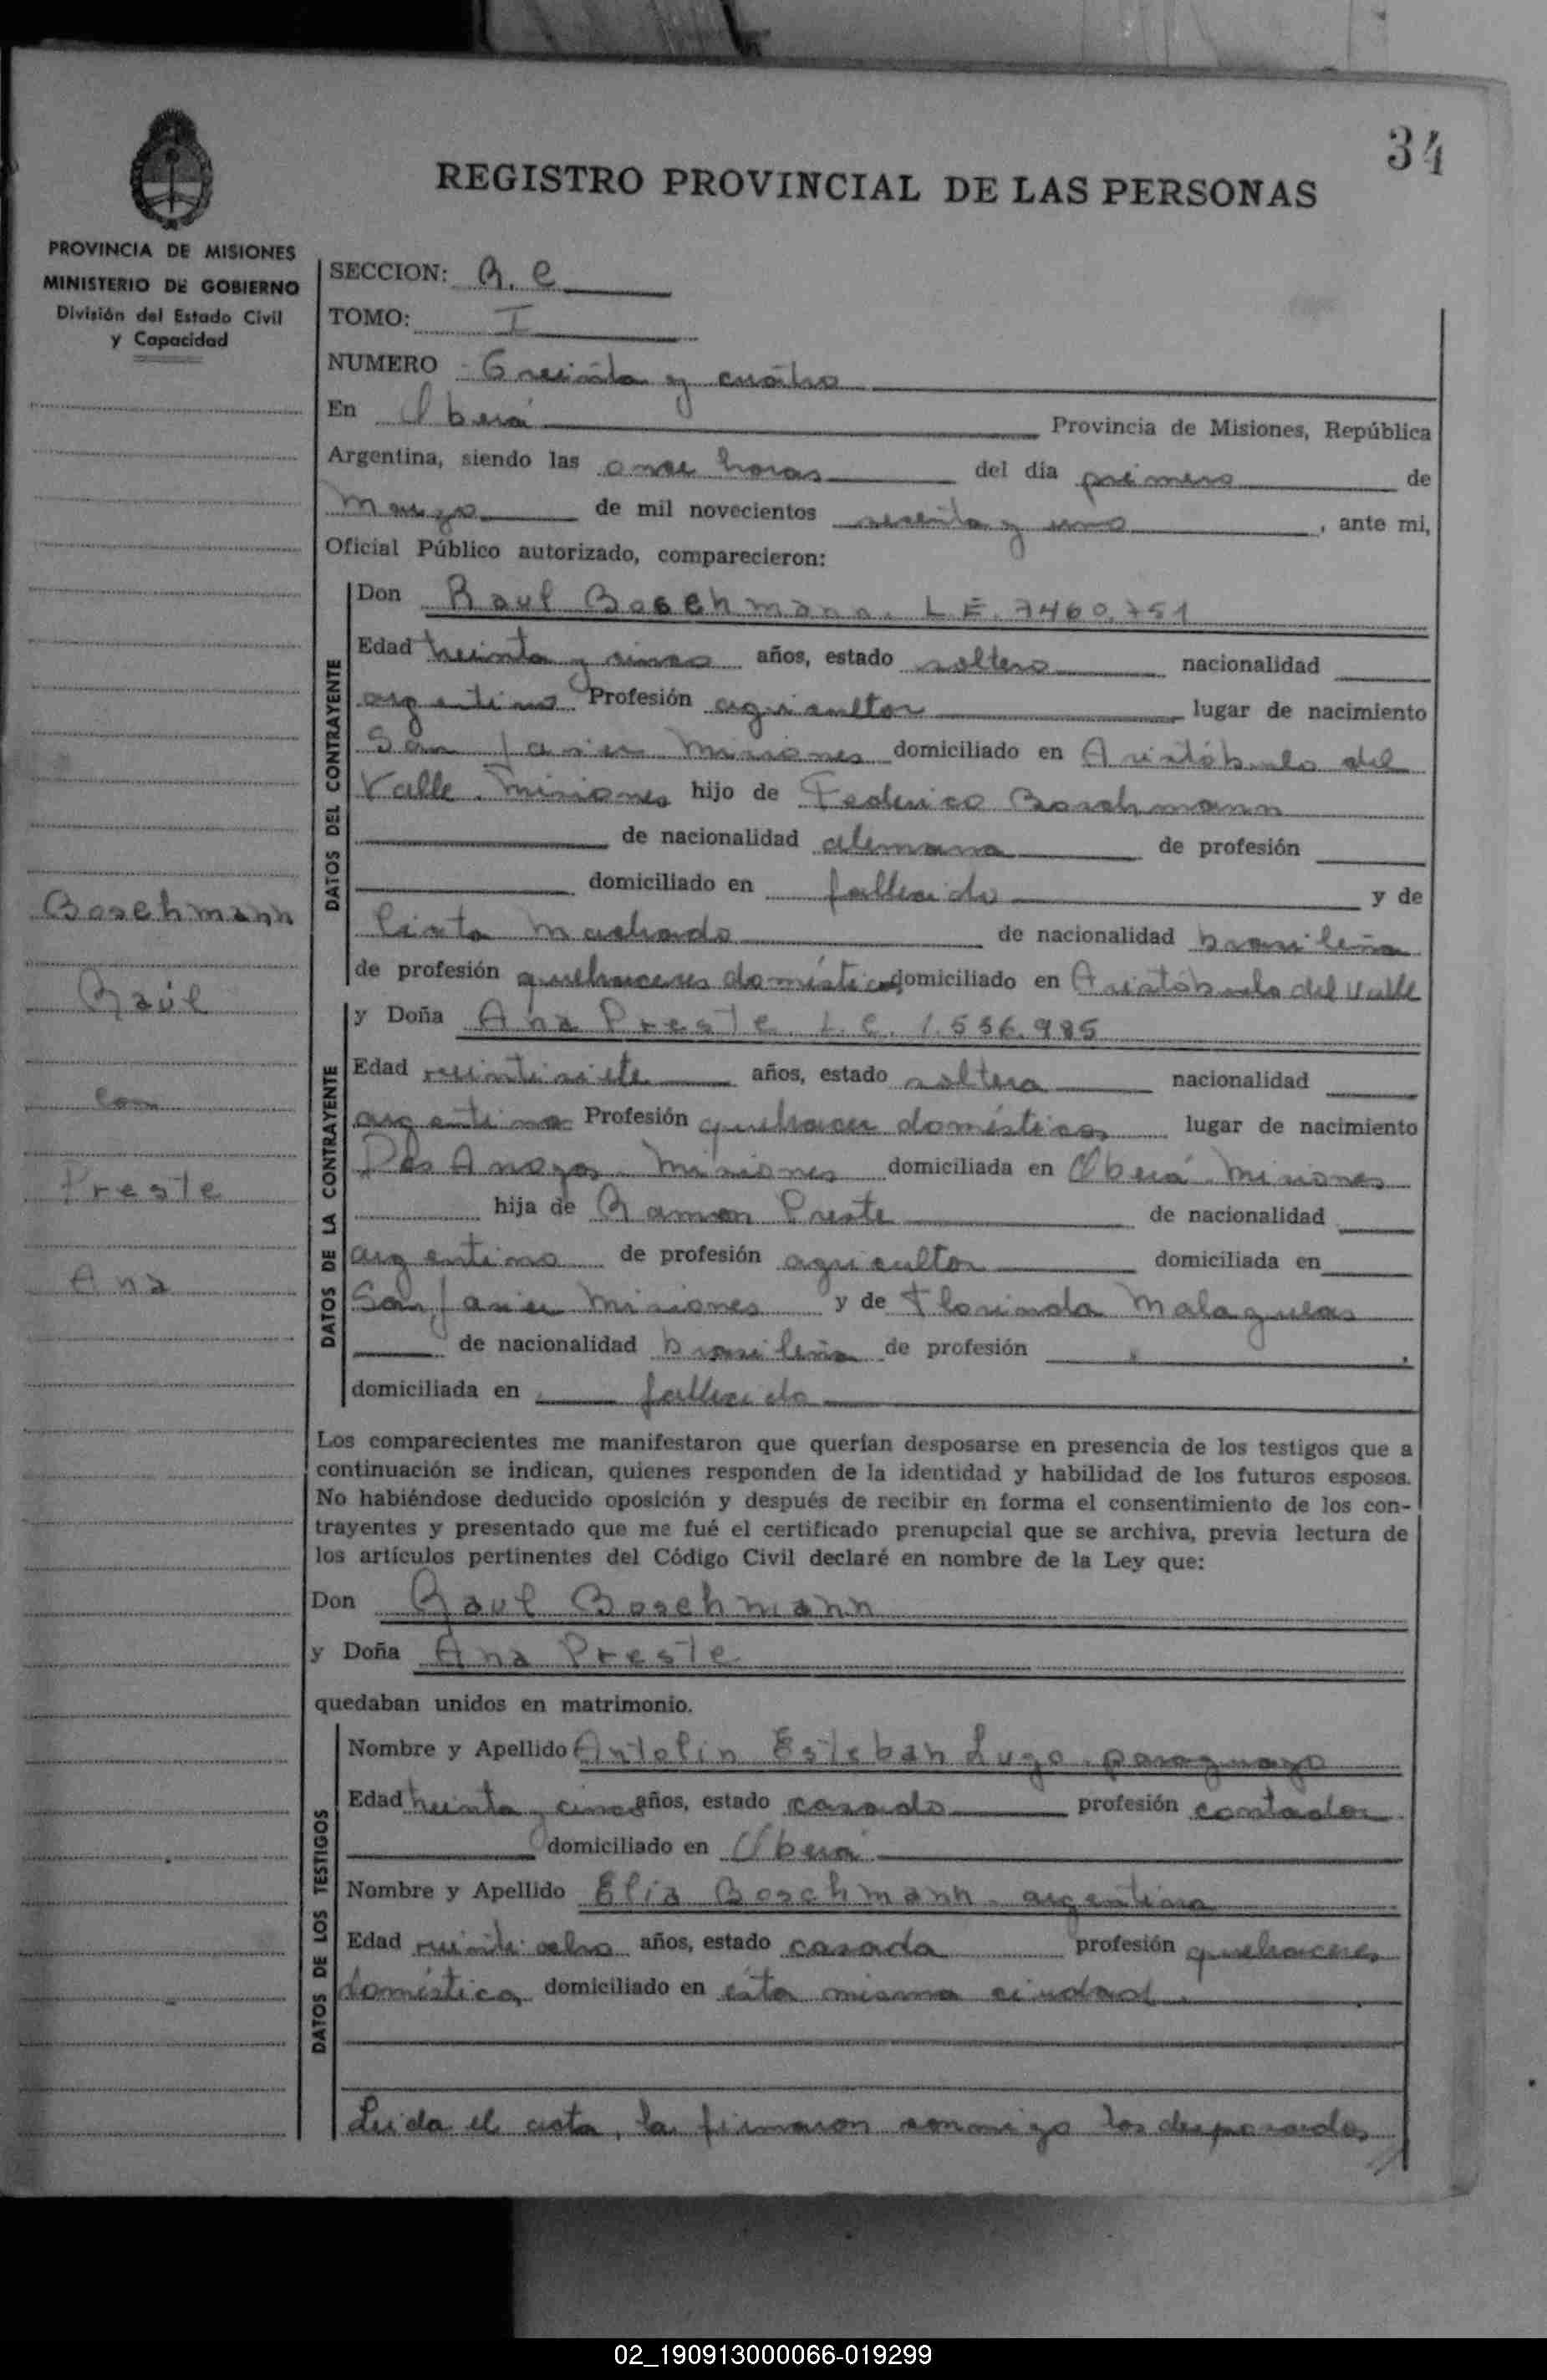 34
REGISTRO PROVINCIAL DE LAS PERSONAS
PROVINCIA DE MISIONES
MINISTERIO DE GOBIERNO
División del Estado Civil
y Capacidad
Boschmann
Raúl
con
Preste
Ana
SECCION: R. C
TOMO: I
NUMERO Treinta y cuatro
En Oberá Provincia de Misiones, República
Argentina, siendo las once horas del día primero de
marzo de mil novecientos sesenta y uno, ante mi,
Oficial Público autorizado, comparecieron:
DATOS DEL CONTRAYENTE
Don Raul Boschmann. L.E. 7460.751
Edad treinta y cinco años, estado soltero nacionalidad
argentino Profesión agricultor lugar de nacimiento
San Javier Misiones domiciliado en Aristóbulo del
Valle. Misiones hijo de Federico Boschmann
de nacionalidad alemana de profesión
domiciliado en fallecido y de
Machado de nacionalidad brasileña
de profesión quehaceres domésticos domiciliado en Aristóbulo del Valle
DATOS DE LA CONTRAYENTE
y Doña Ana Preste L.C. 1.556.985
Edad veintisiete años, estado soltera nacionalidad
argentina Profesión quehacer domésticos lugar de nacimiento
Misiones domiciliada en Oberá. Misiones
hija de Ramon Preste de nacionalidad
argentino de profesión agricultor domiciliada en
San Javier Misiones y de Florinda
de nacionalidad brasileña de profesión
domiciliada en fallecida
Los comparecientes me manifestaron que querían desposarse en presencia de los testigos que a
continuación se indican, quienes responden de la identidad y habilidad de los futuros esposos.
No habiéndose deducido oposición y después de recibir en forma el consentimiento de los con-
trayentes y presentado que me fué el certificado prenupcial que se archiva, previa lectura de
los artículos pertinentes del Código Civil declaré en nombre de la Ley que:
Don Raul Boschmann
y Doña Ana Preste
quedaban unidos en matrimonio.
DATOS DE LOS TESTIGOS
Nombre y Apellido Antolin Esteban Lugo. paraguayo
Edad treinta y cinco años, estado casado profesión contador
domiciliado en Oberá
Nombre y Apellido Elia Boschmann. argentina
Edad veinti ocho años, estado casada profesión quehaceres
doméstico, domiciliado en ésta misma ciudad.
Leida el acta, la firmaron conmigo los desposados
02_190913000066-019299